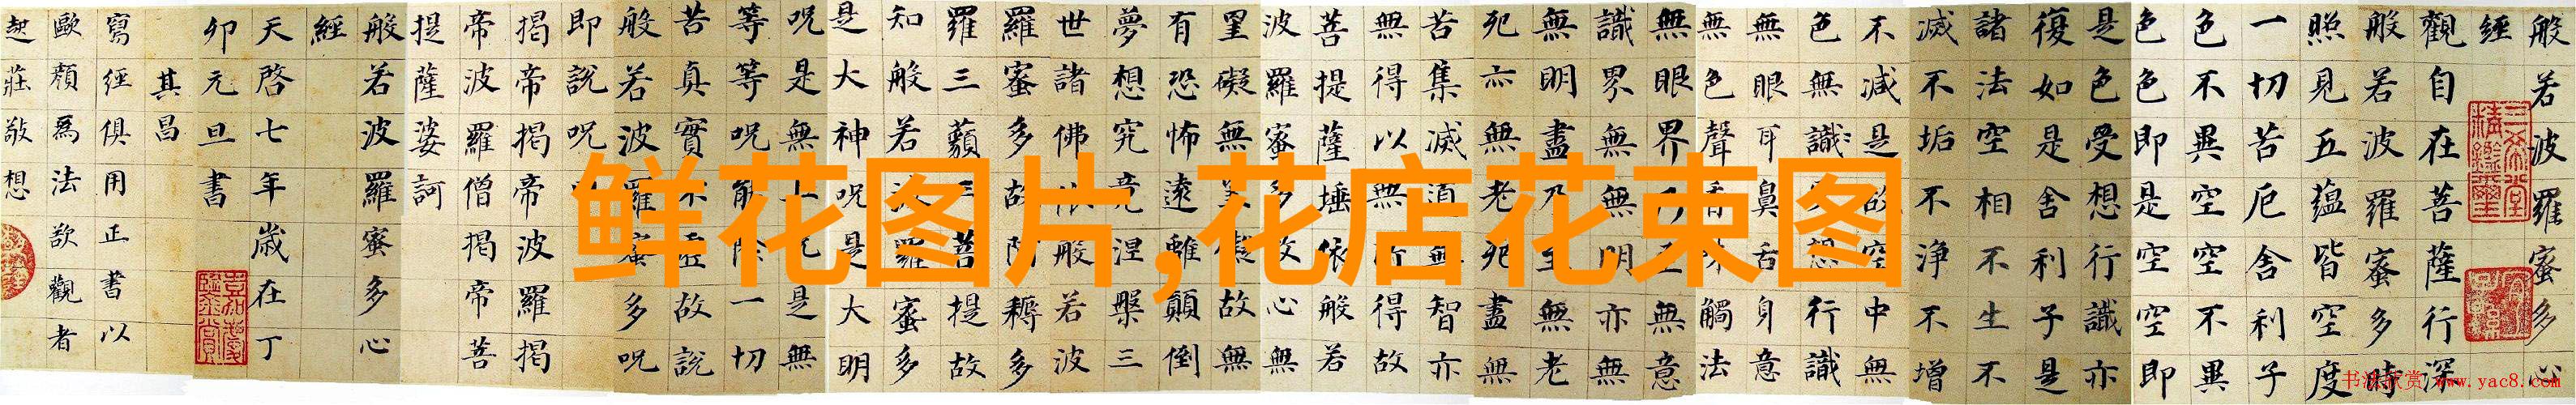 般若波羅蜜多心
經
觀自在菩薩行深
般若波羅蜜多時
照見五蘊皆空度
一切苦厄舍利子
色不異空空不異
色色即是空空即
是色受想行識亦
復如是舍利子是
諸法空相不生不
滅不垢不淨不增
不減是故空中無
色無識想行識
無眼耳鼻舌身意
無色聲香味觸法
無眼界乃至無意
識界無無明亦無
無明盡乃至無老
死亦無老死盡無
苦集滅道無智亦
無得以無所得故
菩提薩埵依般若
波羅蜜多故心無
罣礙無罣礙故無
有恐怖遠離顛倒
夢想究竟涅槃三
世諸佛依般若波
羅蜜多故阿耨多
羅三藐三菩提故
知般若波羅蜜多
是大神呪是大明
呪是無上呪是無
等等呪能除一切
苦真實不虛故說
般若波羅蜜多呪
即說呪曰
揭帝揭帝波羅揭
帝波羅僧揭帝菩
提薩婆訶
般若波羅蜜多心
經
天啓七年歲在丁
卯元旦書
其昌
寫經俱用正書以
歐顏爲法欲觀者
起莊敬想
鲜花图片,花店花束图
书法欣赏 www.yac8.com